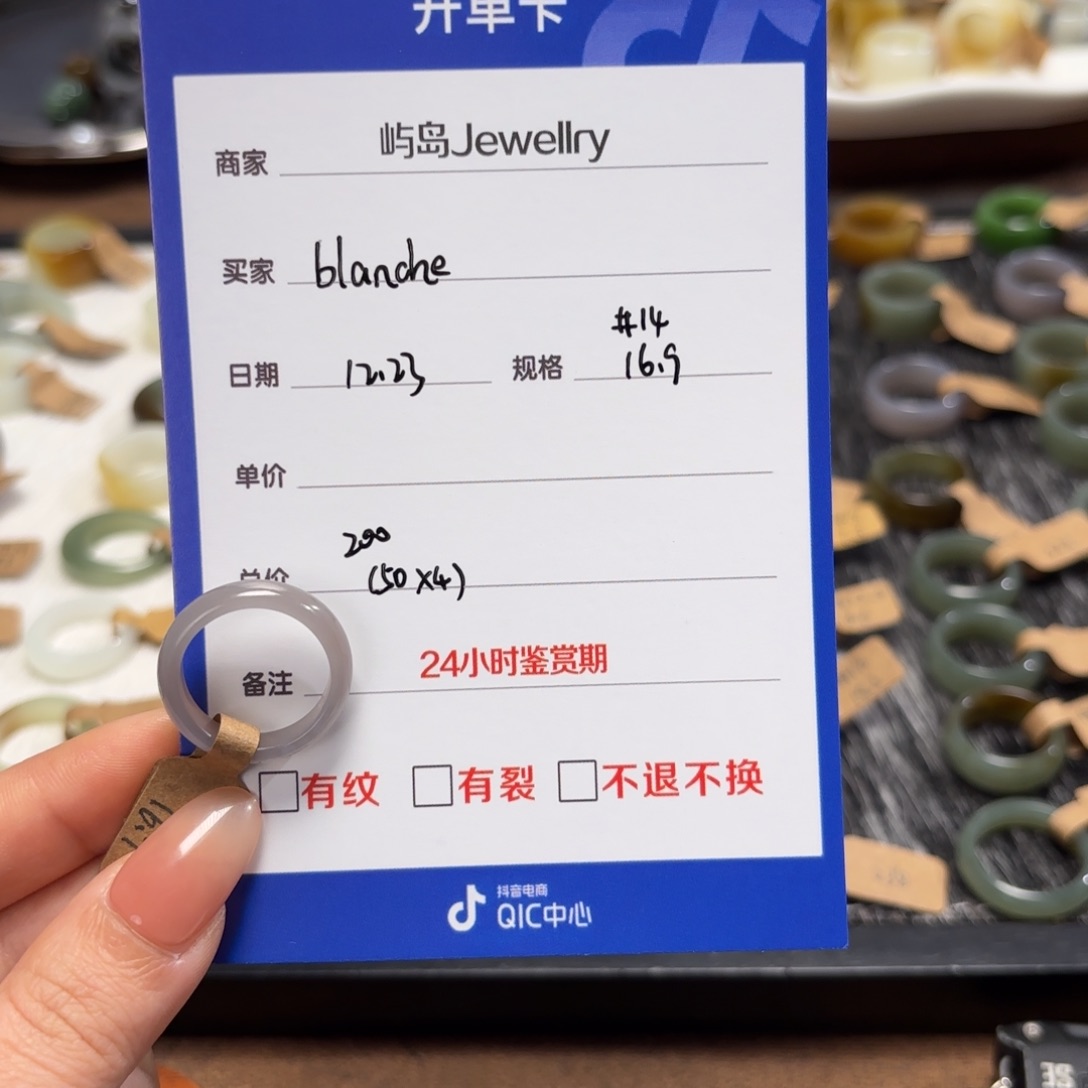 开单卡
商家 屿岛Jewellry
买家 blanche
#14
日期 12.23 规格 16.9
单价
200
总价 (50×4)
备注 24小时鉴赏期
有纹 有裂 不退不换
抖音电商
QIC中心